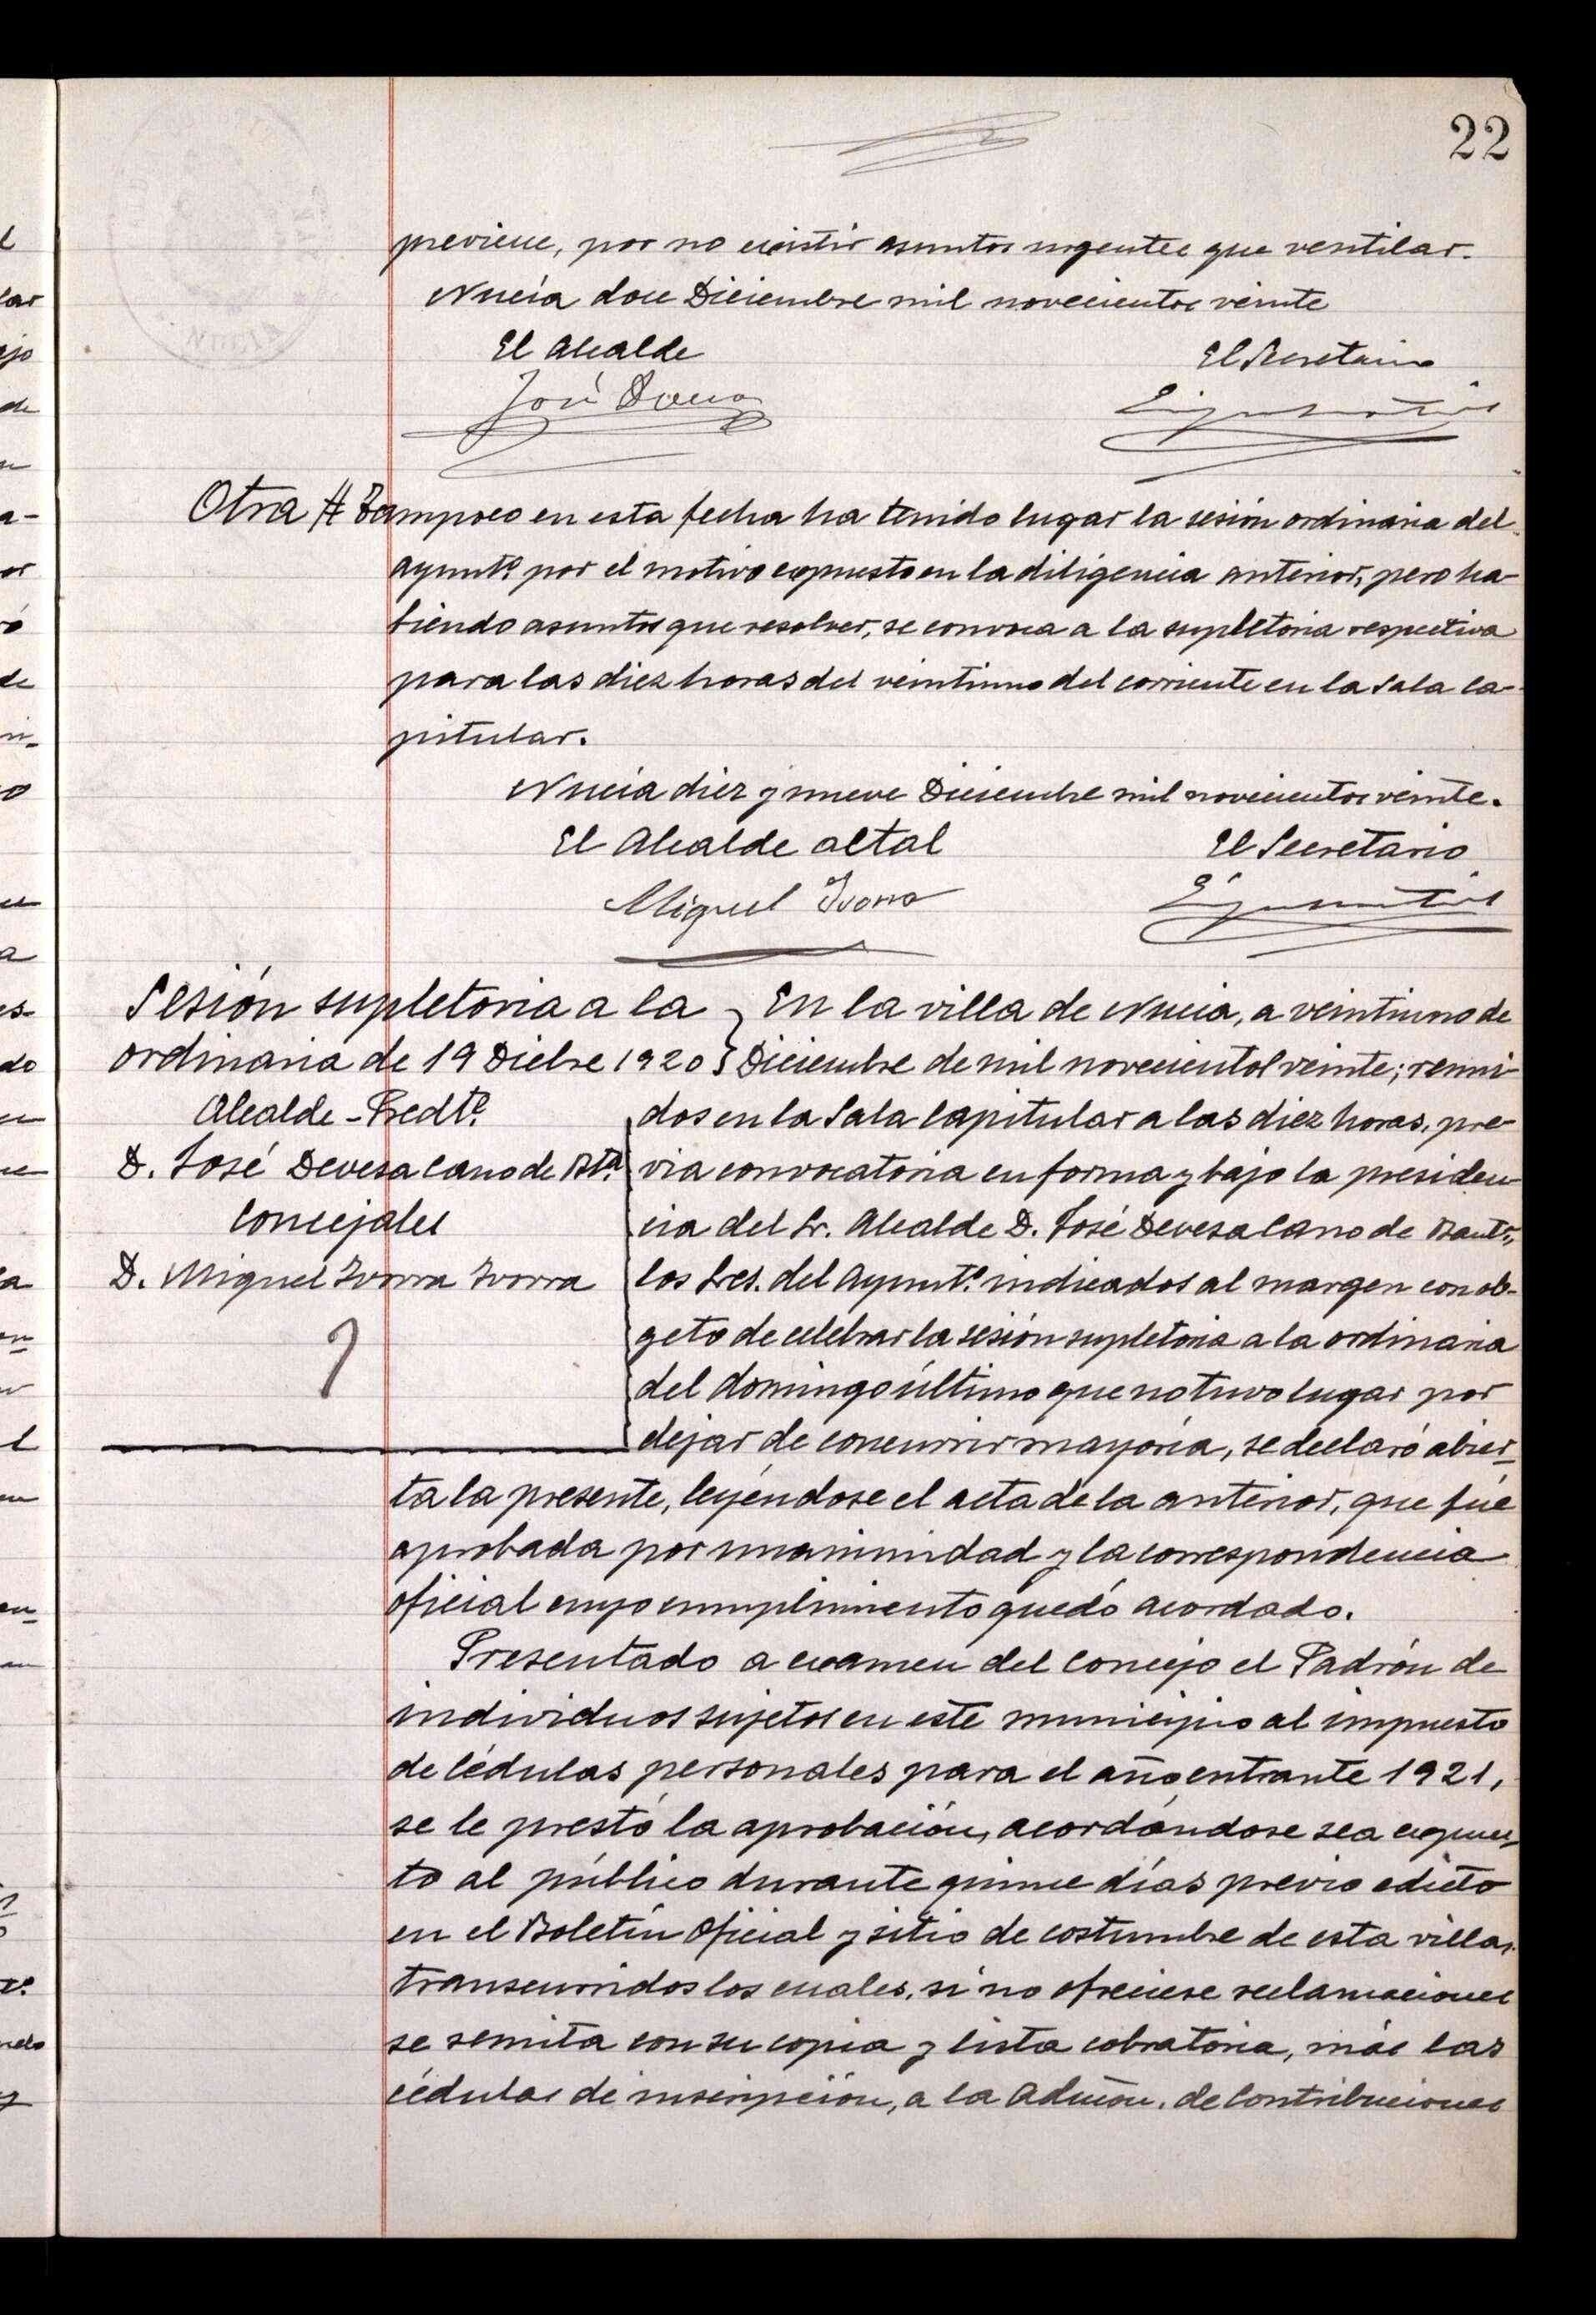 22
previene, por no existir asuntos urgentes que ventilar.
Nucía doce Diciembre mil novecientos veinte
El Alcalde El Secretario
José Devesa
Otra # Tampoco en esta fecha ha tenido lugar la sesión ordinaria del
Ayuntº por el motivo expuesto en la diligencia anterior, pero ha-
biendo asuntos que resolver, se convoca a la supletoria respectiva
para las diez horas del veintiuno del corriente en la Sala Ca-
pitular.
Nucía diez y nueve Diciembre mil novecientos veinte.
El Alcalde actal El Secretario
Miguel Ivorra
Sesión supletoria a la
ordinaria de 19 Dicbre 1920
Alcalde-Predte
D. José Devesa Cano de Bta
Concejales
D. Miguel Ivorra Ivorra
En la villa de Nucia, a veintiuno de
Diciembre de mil novecientos veinte; reuni-
dos en la Sala Capitular a las diez horas, pre-
via convocatoria en forma y bajo la presiden-
cia del Sr. Alcalde D. José Devesa Cano de Bautª,
los Sres. del Ayuntº indicados al margen con ob-
geto de celebrar la sesión supletoria a la ordinaria
del domingo último que no tuvo lugar por
dejar de concurrir mayoría, se declaró abier-
ta la presente, leyéndose el acta de la anterior, que fué
aprobada por unanimidad y la correspondencia
oficial cuyo cumplimiento quedó acordado.
Presentado a examen del Concejo el Padrón de
individuos sujetos en este municipio al impuesto
de Cédulas personales para el año entrante 1921,
se le prestó la aprobación, acordándose sea expues-
to al público durante quince días previo edicto
en el Boletín Oficial y sitio de costumbre de esta villa,
transcurridos los cuales, si no ofreciese reclamaciones
se remita con su copia y lista cobratoria, más las
cédulas de inscripción, a la Admón. de Contribuciones